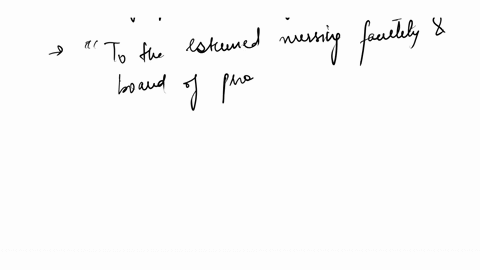 → "" To the esteemed nursing facutely &
board of pro